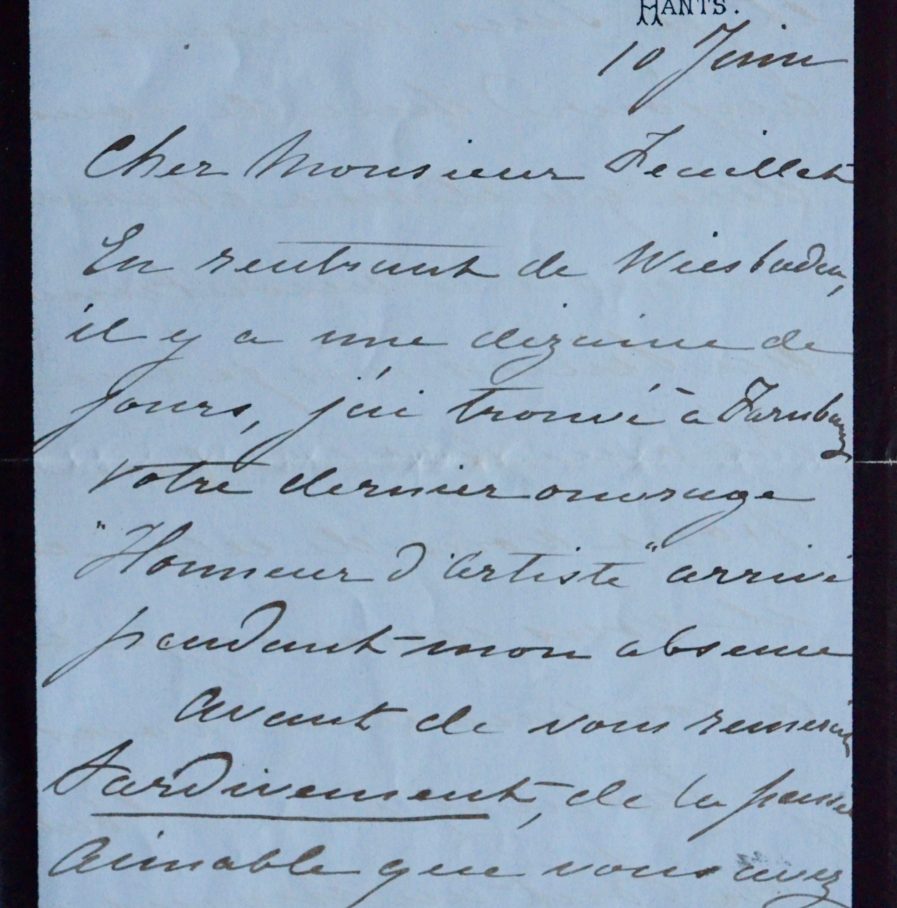 HANTS.
10 Juin
Cher Monsieur Feuillet
En rentrant de Wiesbaden,
il y a une dizaine de
jours, j'ai trouvé à Farnboro
votre dernier ouvrage
"Honneur d'artiste" arrivé
pendant mon absence
Avant de vous remercier
tardivement, de la pensée
aimable que vous avez